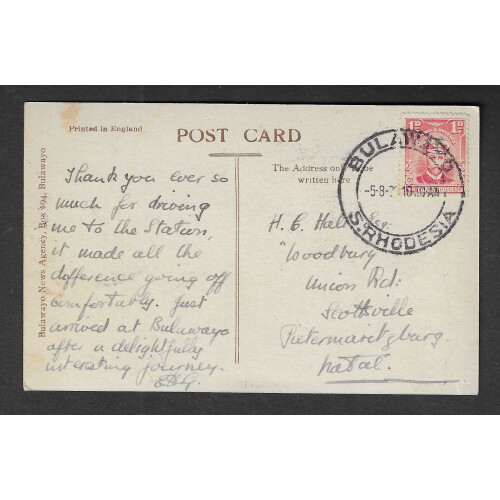 Printed in England
POST CARD
Bulawayo News Agency, Box 394, Bulawayo
Thank you ever so
much for driving
me to the Station,
it made all the
difference going off
comfortably. Just
arrived at Bulawayo
after a delightfully
interesting journey.
The Address on be
written here
H. C. Hall
"Woodbury
Union Rd:
Scottsville
Pietermaritzburg
Natal.
1D
BULAWAYO
-5-8-
S. RHODESIA